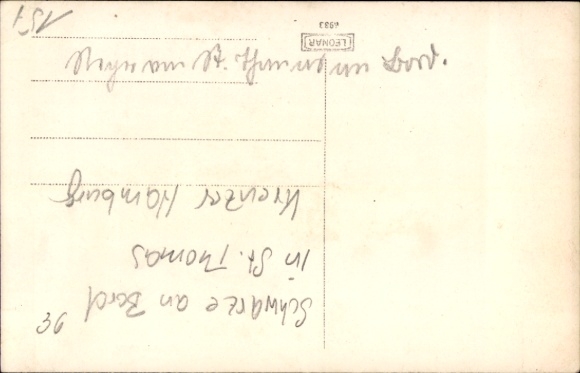 151
LEONAR
6983
Neger von St. Thomas an Bord.
Schwarze an Bord
in St. Thomas
Kreuzer Hamburg